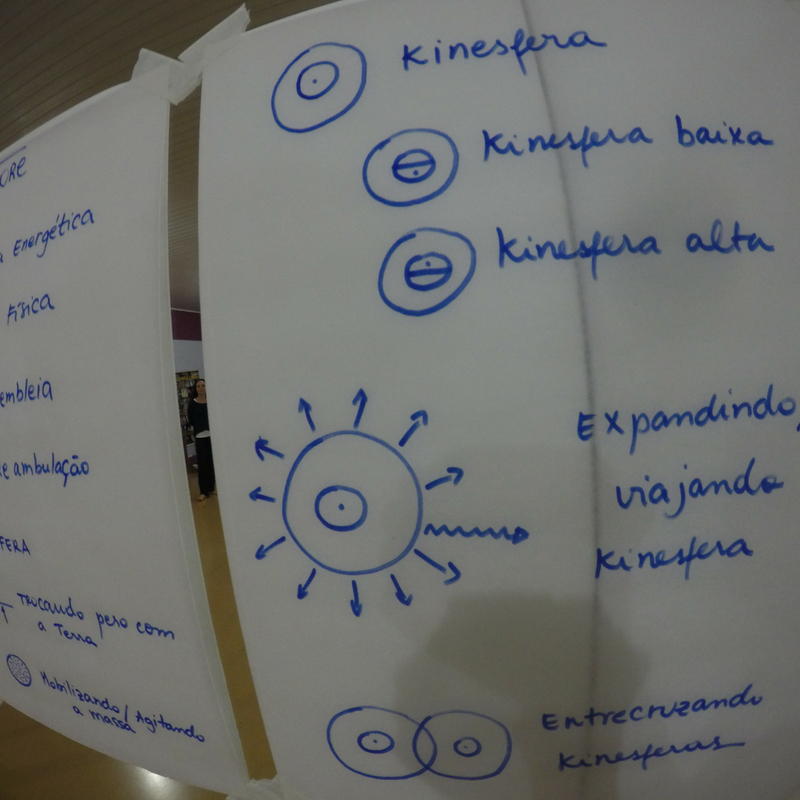 Energética
Física
e ambulação
Trocando peso com
a Terra
Mobilizando/Agitando
a massa
Kinesfera
Kinesfera baixa
Kinesfera alta
Expandindo,
viajando
Kinesfera
Entrecruzando
Kinesferas